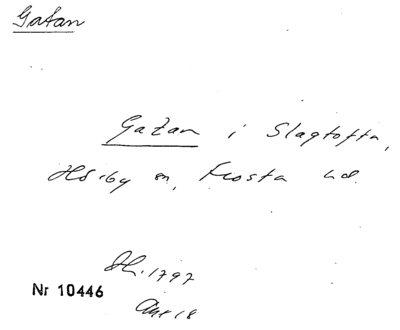 Gatan
Gatan i Slagtofta,
Hörby sn, Frosta hd.
1797
Nr 10446